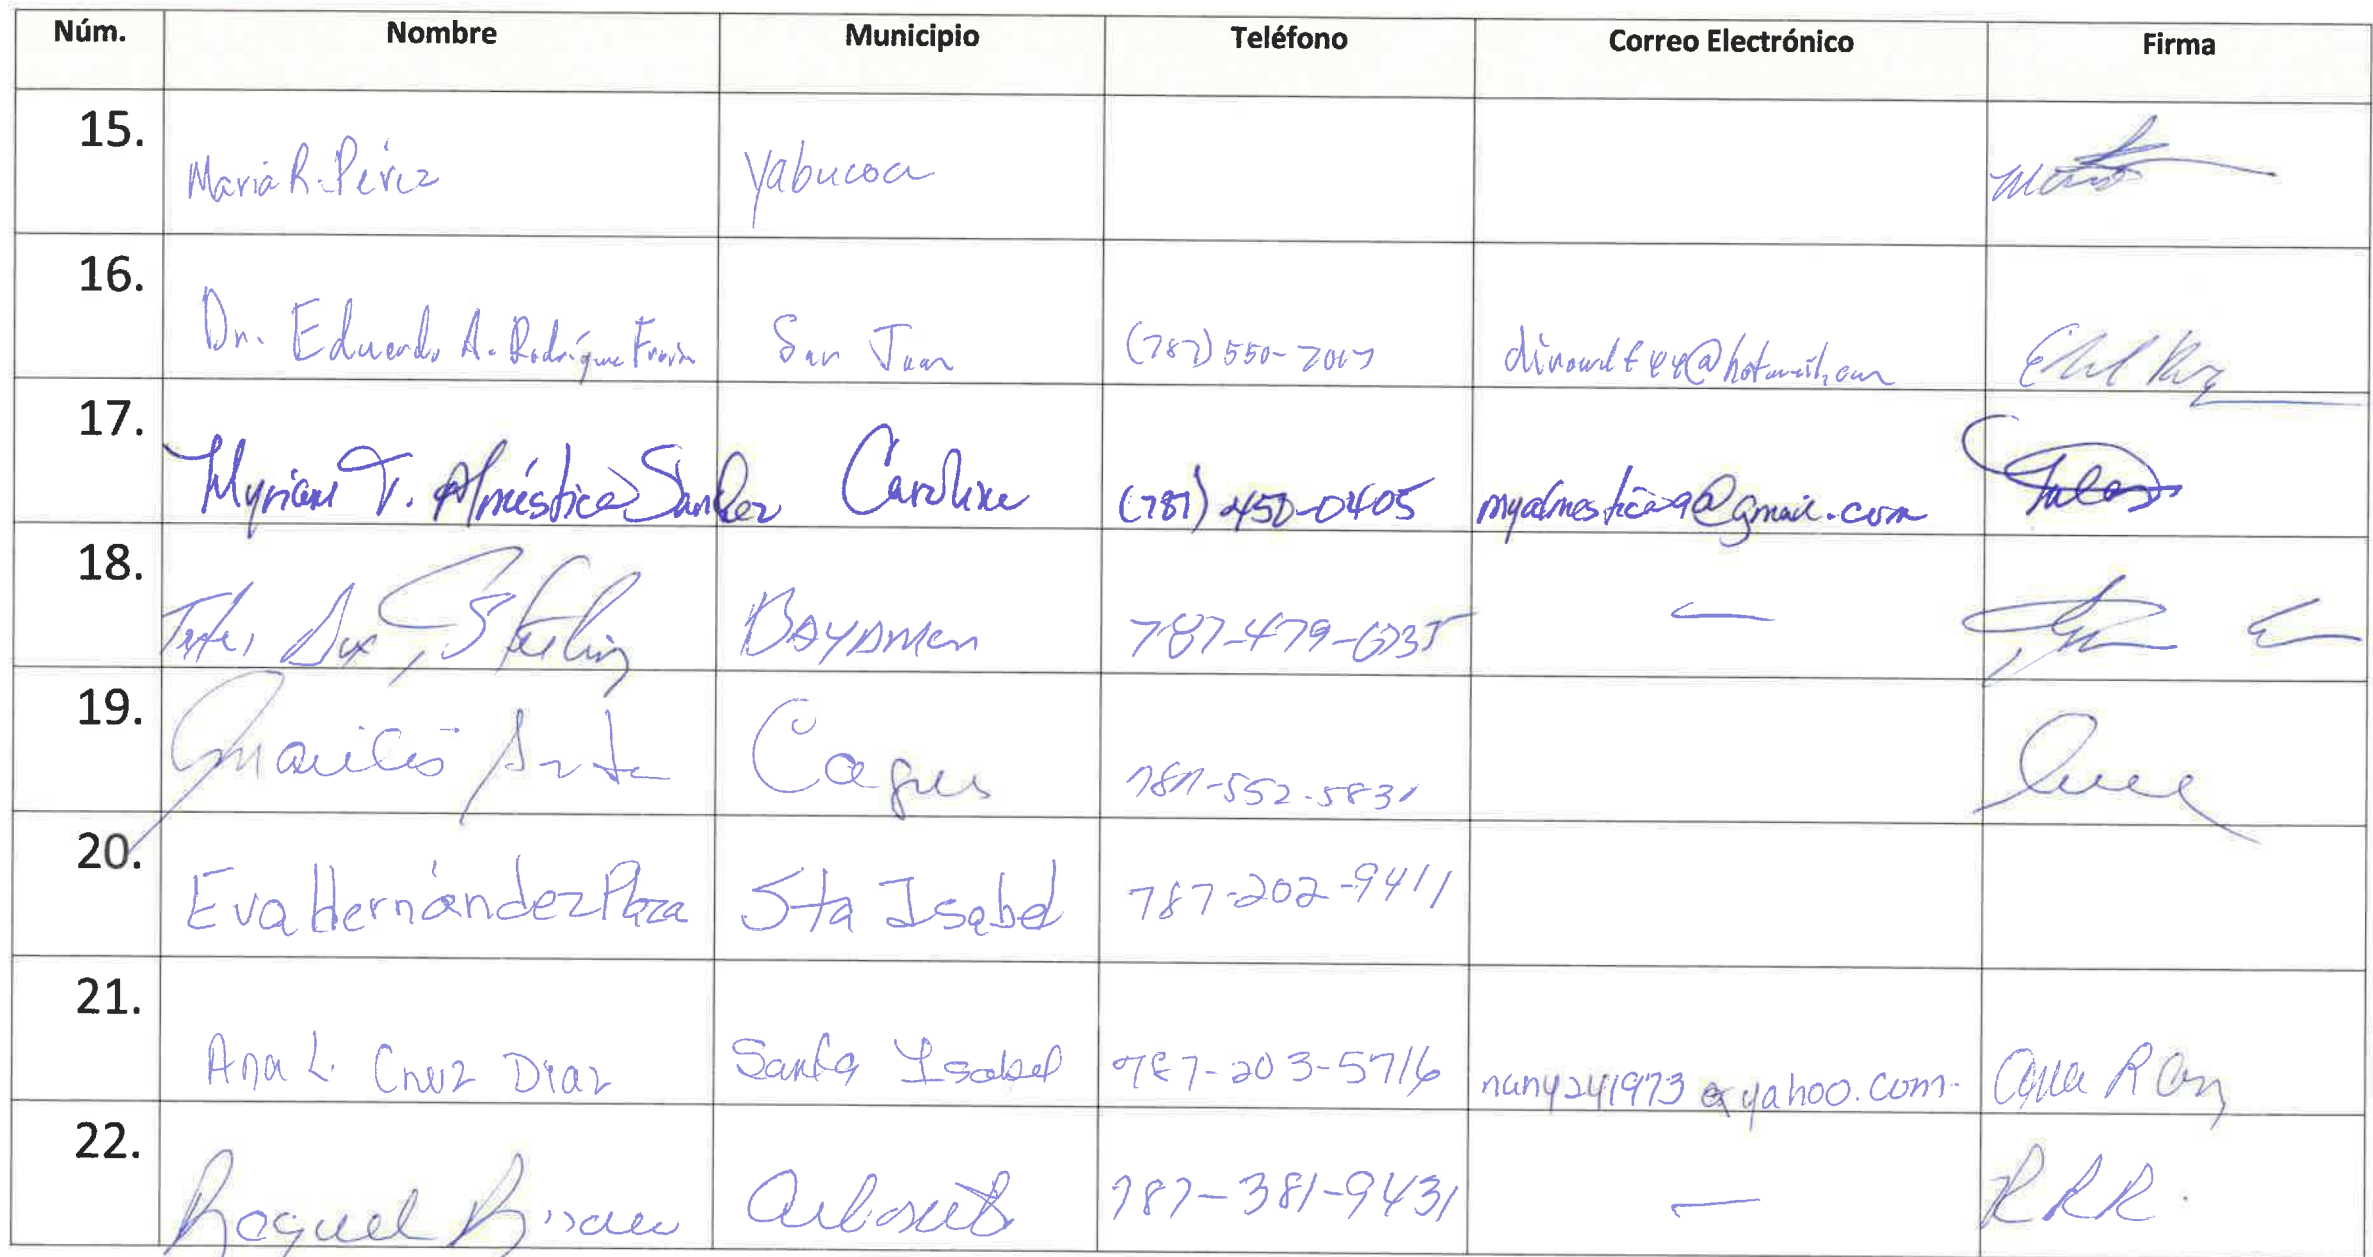 Núm. Nombre Municipio Teléfono Correo Electrónico Firma
15. María R. Pérez Yabucoa
16. Dr. Eduardo A. Rodríguez San Juan (787) 550-7017
17. Myriam T. Alméstica Sanchez Carolina (787) 450-0405 myalmestica9@gmail.com
18. Bayamon 787-479-6735 —
19. Caguas 787-552-5831
20. Eva Hernández Plaza Sta Isabel 787-202-9411
21. Ana L. Cruz Diaz Santa Isabel 787-203-5716 nany241973@yahoo.com
22. Raquel 787-381-9431 — RRR.